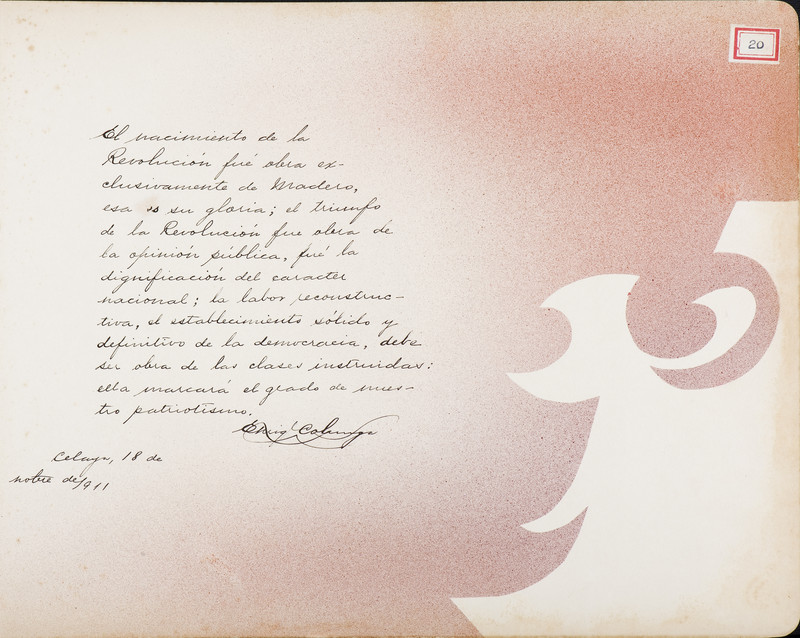 20
El nacimiento de la
Revolución fué obra ex-
clusivamente de Madero,
esa es su gloria; el triunfo
de la Revolución fue obra de
la opinión pública, fué la
dignificación del caracter
nacional; la labor reconstruc-
tiva, el establecimiento sólido y
definitivo de la democracia, debe
ser obra de las clases instruidas:
ella marcará el grado de nues-
tro patriotismo.
Enriq. Colunga
Celaya, 18 de
nobre de 1911